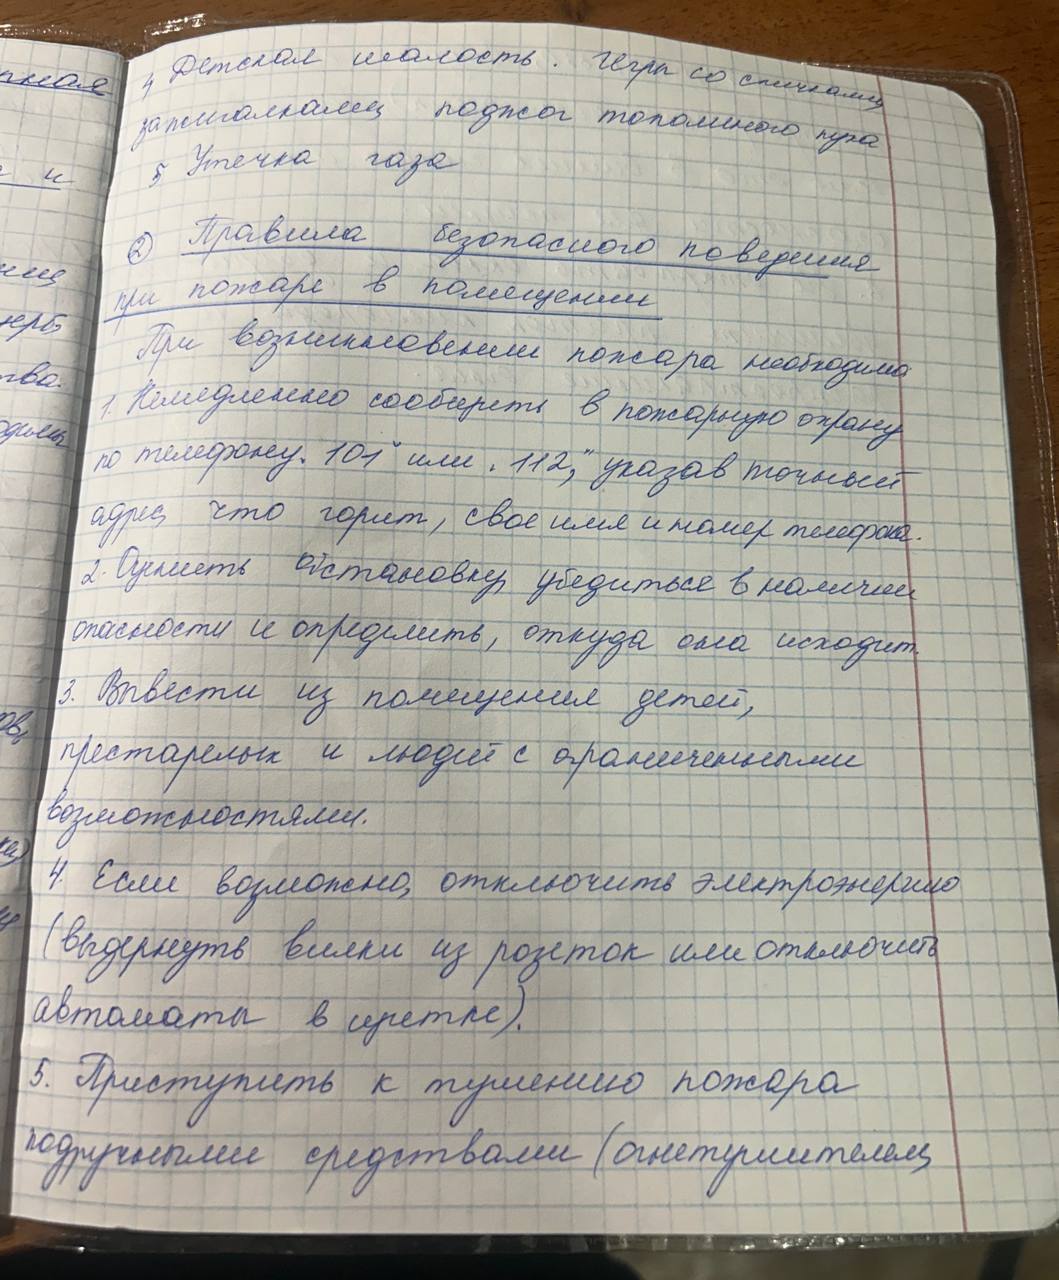 4 Детская шалость. Игры со спичками,
зажигалками, поджог тополиного пуха
5 Утечка газа
② Правила безопасного поведения
при пожаре в помещении
При возникновении пожара необходимо
1. Немедленно сообщить в пожарную охрану
по телефону „101" или „112," указав точный
адрес, что горит, свое имя и номер телефона.
2. Оценить обстановку, убедиться в наличии
опасности и определить, откуда она исходит.
3. Вывести из помещения детей,
престарелых и людей с ограниченными
возможностями.
4. Если возможно, отключить электроэнергию
(выдернуть вилки из розеток или отключить
автоматы в щитке).
5. Приступить к тушению пожара
подручными средствами (огнетушителем,